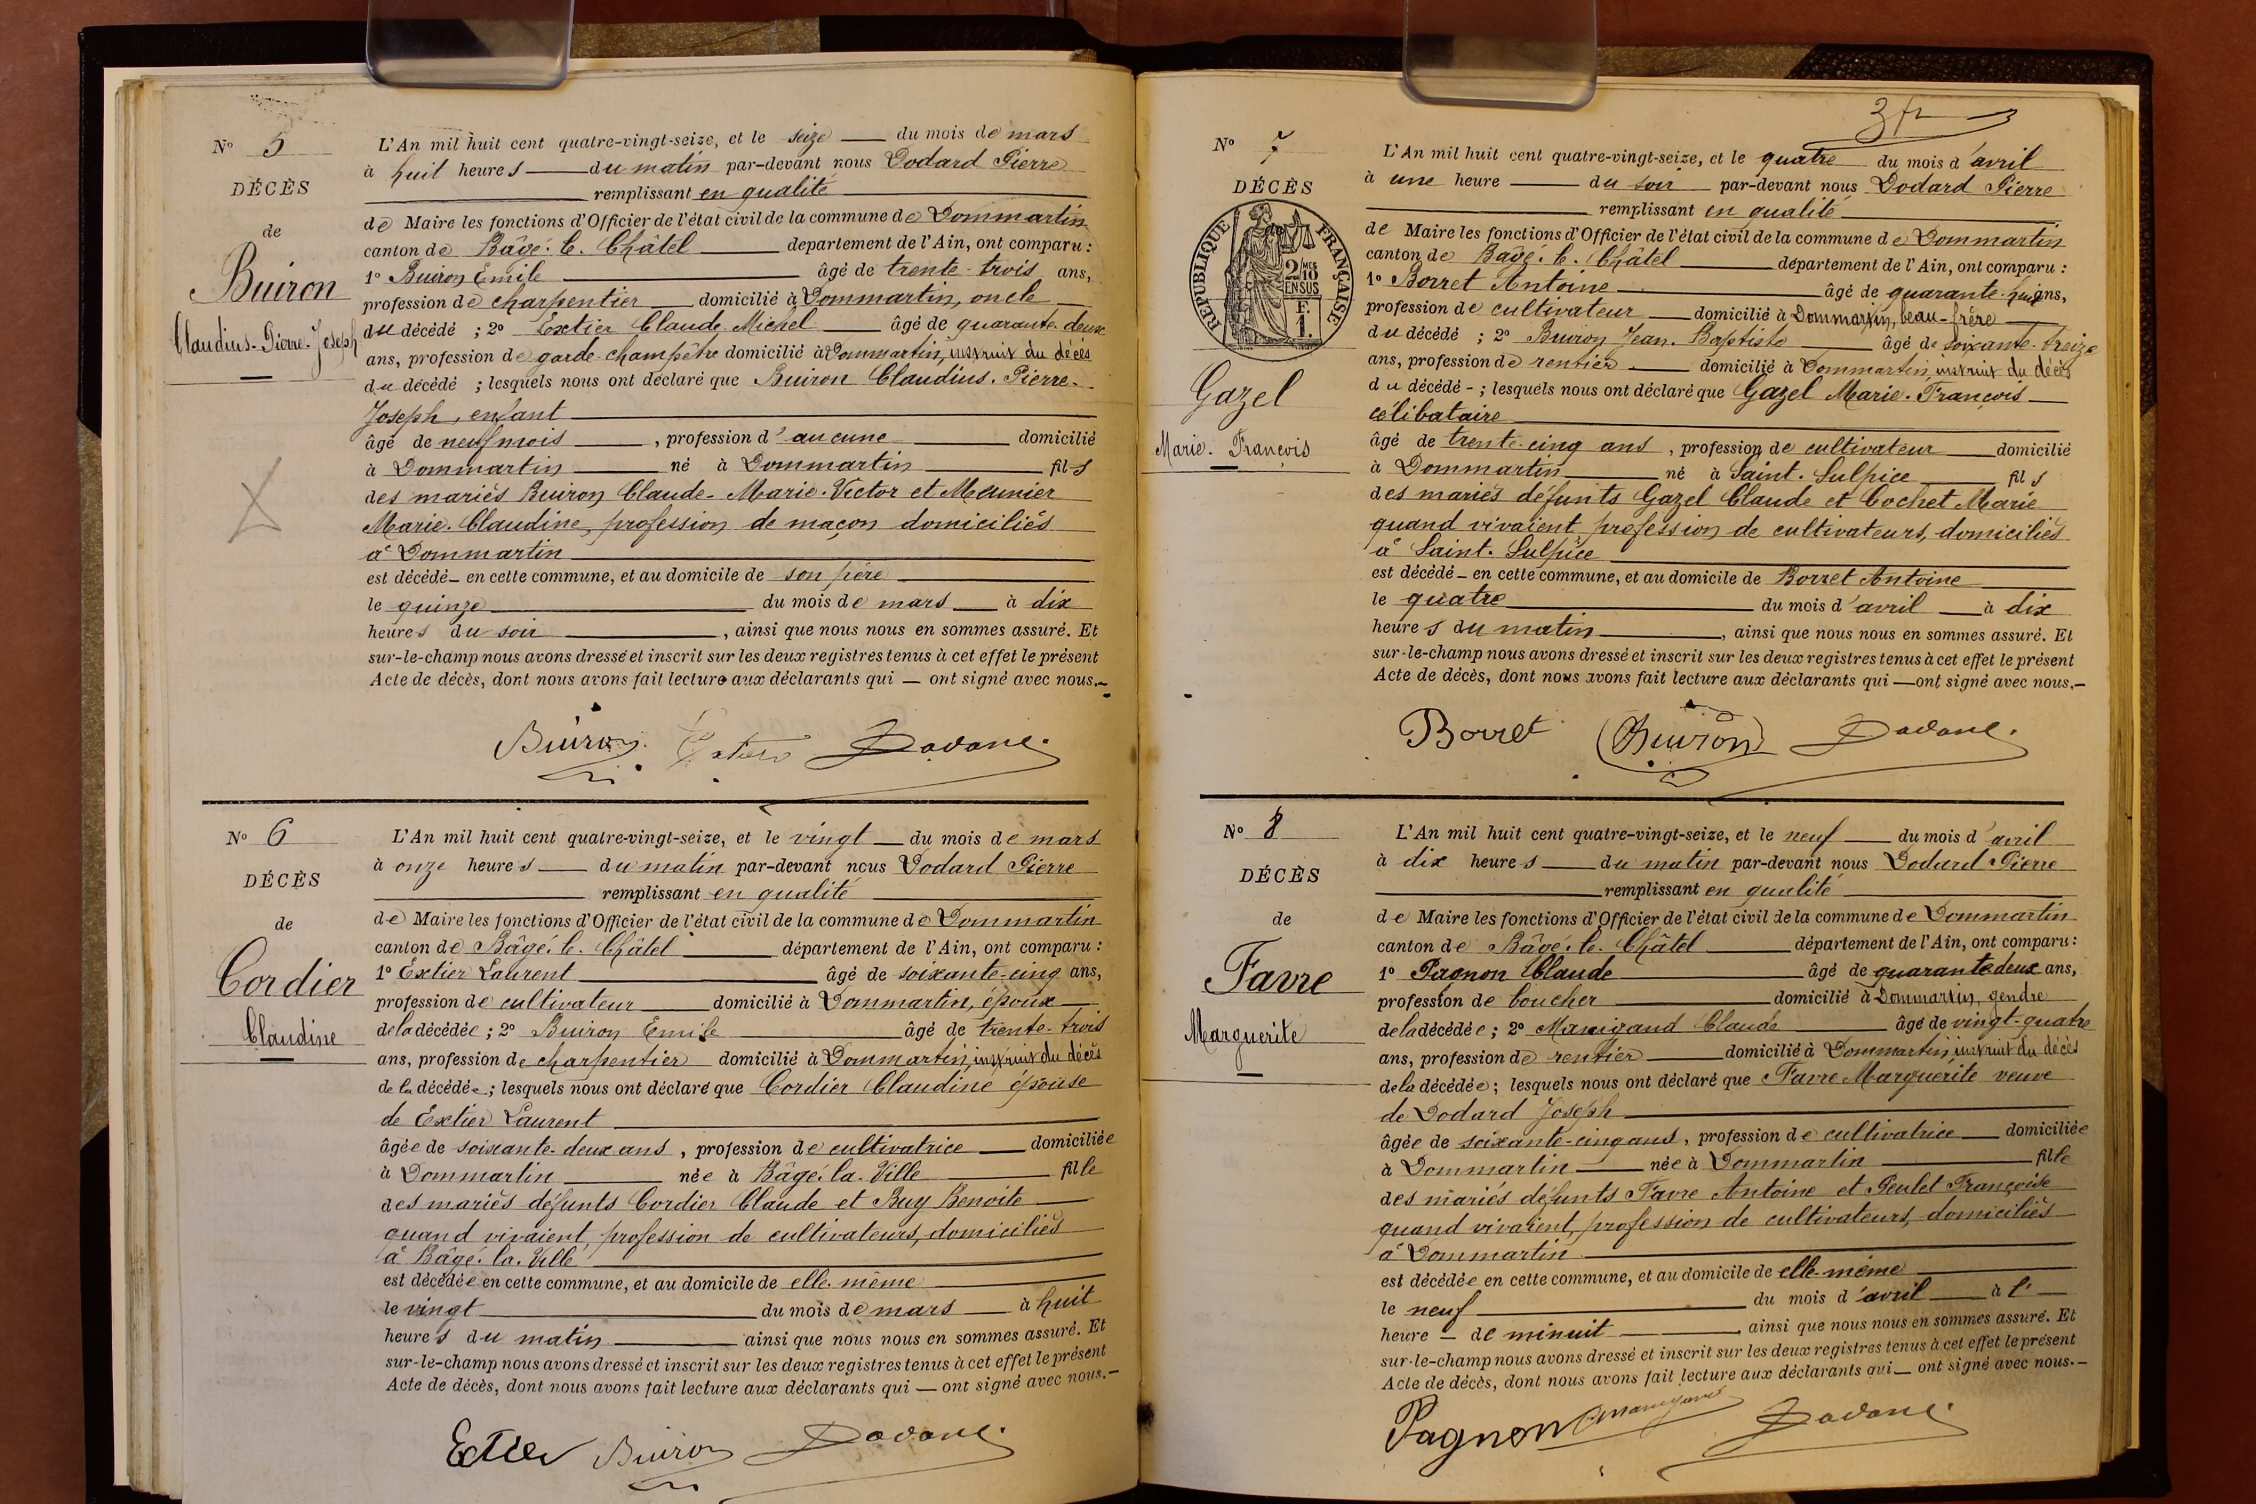 N° 5
DÉCÈS
de
Buiron
Claudius-Pierre-Joseph
L'An mil huit cent quatre-vingt-seize, et le seize du mois de mars
à huit heures du matin par-devant nous Dodard Pierre
remplissant en qualité
de Maire les fonctions d'Officier de l'état civil de la commune de Dommartin
canton de Bâgé-le-Châtel département de l'Ain, ont comparu :
1° Buiron Emile âgé de trente-trois ans,
profession de charpentier domicilié à Dommartin, oncle
du décédé ; 2° Extier Claude Michel âgé de quarante-deux
ans, profession de garde-champêtre domicilié à Dommartin, instruit du décès
du décédé ; lesquels nous ont déclaré que Buiron Claudius-Pierre-
Joseph, enfant
âgé de neuf mois, profession d'aucune domicilié
à Dommartin né à Dommartin fils
des mariés Buiron Claude-Marie-Victor et Meunier
Marie-Claudine, profession de maçon domiciliés
à Dommartin
est décédé en cette commune, et au domicile de son père
le quinze du mois de mars à dix
heures du soir, ainsi que nous nous en sommes assuré. Et
sur-le-champ nous avons dressé et inscrit sur les deux registres tenus à cet effet le présent
Acte de décès, dont nous avons fait lecture aux déclarants qui — ont signé avec nous.
Buiron Extier Dodard
N° 6
DÉCÈS
de
Cordier
Claudine
L'An mil huit cent quatre-vingt-seize, et le vingt du mois de mars
à onze heures du matin par-devant nous Dodard Pierre
remplissant en qualité
de Maire les fonctions d'Officier de l'état civil de la commune de Dommartin
canton de Bâgé-le-Châtel département de l'Ain, ont comparu :
1° Extier Laurent âgé de soixante-cinq ans,
profession de cultivateur domicilié à Dommartin, époux
de la décédée ; 2° Buiron Emile âgé de trente-trois
ans, profession de charpentier domicilié à Dommartin, instruit du décès
de la décédée ; lesquels nous ont déclaré que Cordier Claudine épouse
de Extier Laurent
âgée de soixante-deux ans, profession de cultivatrice domiciliée
à Dommartin née à Bâgé-la-Ville fille
des mariés défunts Cordier Claude et Buy Benoite
quand vivaient, profession de cultivateurs, domiciliés
à Bâgé-la-Ville
est décédée en cette commune, et au domicile de elle-même
le vingt du mois de mars à huit
heures du matin ainsi que nous nous en sommes assuré. Et
sur-le-champ nous avons dressé et inscrit sur les deux registres tenus à cet effet le présent
Acte de décès, dont nous avons fait lecture aux déclarants qui — ont signé avec nous.
Extier Buiron Dodard
N° 7
DÉCÈS
RÉPUBLIQUE FRANÇAISE
2/10 MES
EN SUS
F.
1.
Gazel
Marie-François
L'An mil huit cent quatre-vingt-seize, et le quatre du mois d'avril
à une heure du soir par-devant nous Dodard Pierre
remplissant en qualité
de Maire les fonctions d'Officier de l'état civil de la commune de Dommartin
canton de Bâgé-le-Châtel département de l'Ain, ont comparu :
1° Borret Antoine âgé de quarante-huit ans,
profession de cultivateur domicilié à Dommartin, beau-frère
du décédé ; 2° Buiron Jean-Baptiste âgé de soixante-treize
ans, profession de rentier domicilié à Dommartin, instruit du décès
du décédé ; lesquels nous ont déclaré que Gazel Marie-François
célibataire
âgé de trente-cinq ans, profession de cultivateur domicilié
à Dommartin né à Saint-Sulpice fils
des mariés défunts Gazel Claude et Cochet Marie
quand vivaient, profession de cultivateurs, domiciliés
à Saint-Sulpice
est décédé en cette commune, et au domicile de Borret Antoine
le quatre du mois d'avril à dix
heures du matin, ainsi que nous nous en sommes assuré. Et
sur-le-champ nous avons dressé et inscrit sur les deux registres tenus à cet effet le présent
Acte de décès, dont nous avons fait lecture aux déclarants qui — ont signé avec nous.
Borret Buiron Dodard
N° 8
DÉCÈS
de
Favre
Marguerite
L'An mil huit cent quatre-vingt-seize, et le neuf du mois d'avril
à dix heures du matin par-devant nous Dodard Pierre
remplissant en qualité
de Maire les fonctions d'Officier de l'état civil de la commune de Dommartin
canton de Bâgé-le-Châtel département de l'Ain, ont comparu :
1° Pagnon Claude âgé de quarante deux ans,
profession de boucher domicilié à Dommartin, gendre
de la décédée ; 2° Manigand Claude âgé de vingt-quatre
ans, profession de rentier domicilié à Dommartin, instruit du décès
de la décédée ; lesquels nous ont déclaré que Favre Marguerite veuve
de Dodard Joseph
âgée de soixante-cinq ans, profession de cultivatrice domiciliée
à Dommartin née à Dommartin fille
des mariés défunts Favre Antoine et Peulet Françoise
quand vivaient, profession de cultivateurs, domiciliés
à Dommartin
est décédée en cette commune, et au domicile de elle-même
le neuf du mois d'avril à l'
heure de minuit ainsi que nous nous en sommes assuré. Et
sur-le-champ nous avons dressé et inscrit sur les deux registres tenus à cet effet le présent
Acte de décès, dont nous avons fait lecture aux déclarants qui — ont signé avec nous.
Pagnon Manigand Dodard